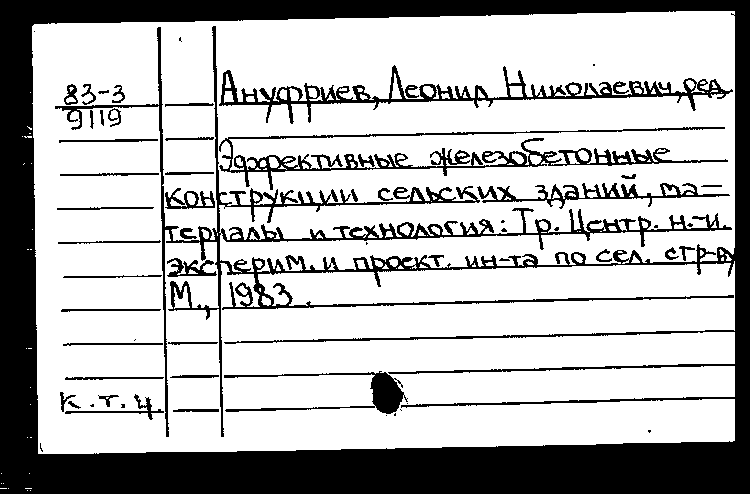 83-3
9119
Ануфриев, Леонид Николаевич, ред.
Эффективные железобетонные
конструкции сельских зданий, ма-
териалы и технология: Тр. Центр. н.-и.
эксперим. и проект. ин-та по сел. стр-ву
М., 1983.
к.т.ц.